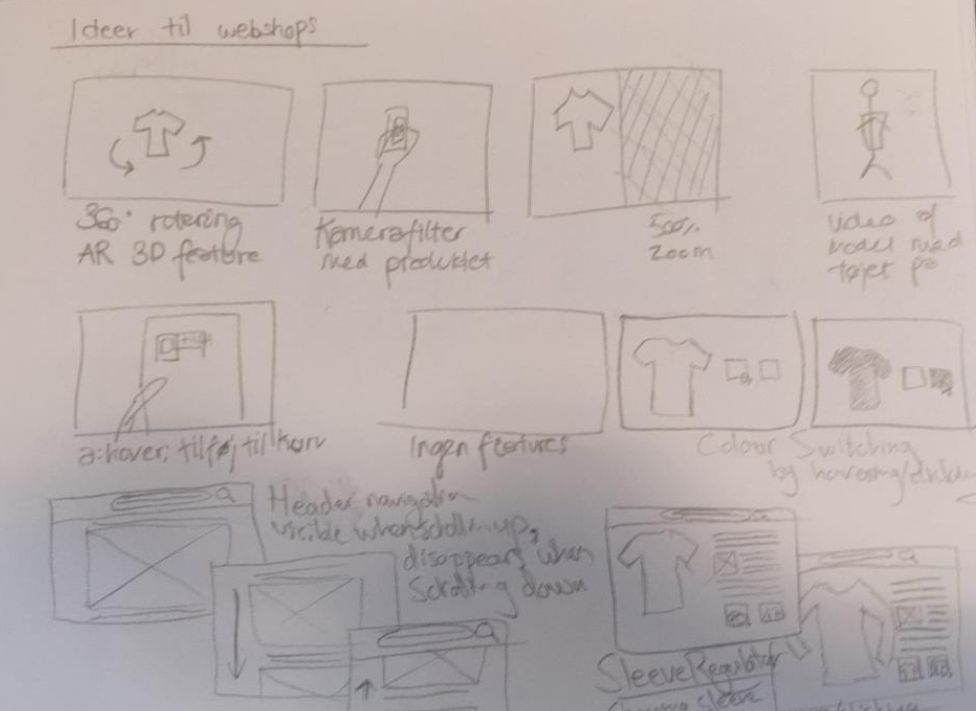 Ideer til webshops
360° rotering
AR 3D feature
Kamerafilter
med produktet
500%
Zoom
video of
model med
tøjet på
a:hover; tilføj till kurv
Ingen features
Colour Switching
by hovering/
Header navigation
visible when scrollin up,
disappears when
scrolling down
Sleeve Regulator
sleeve